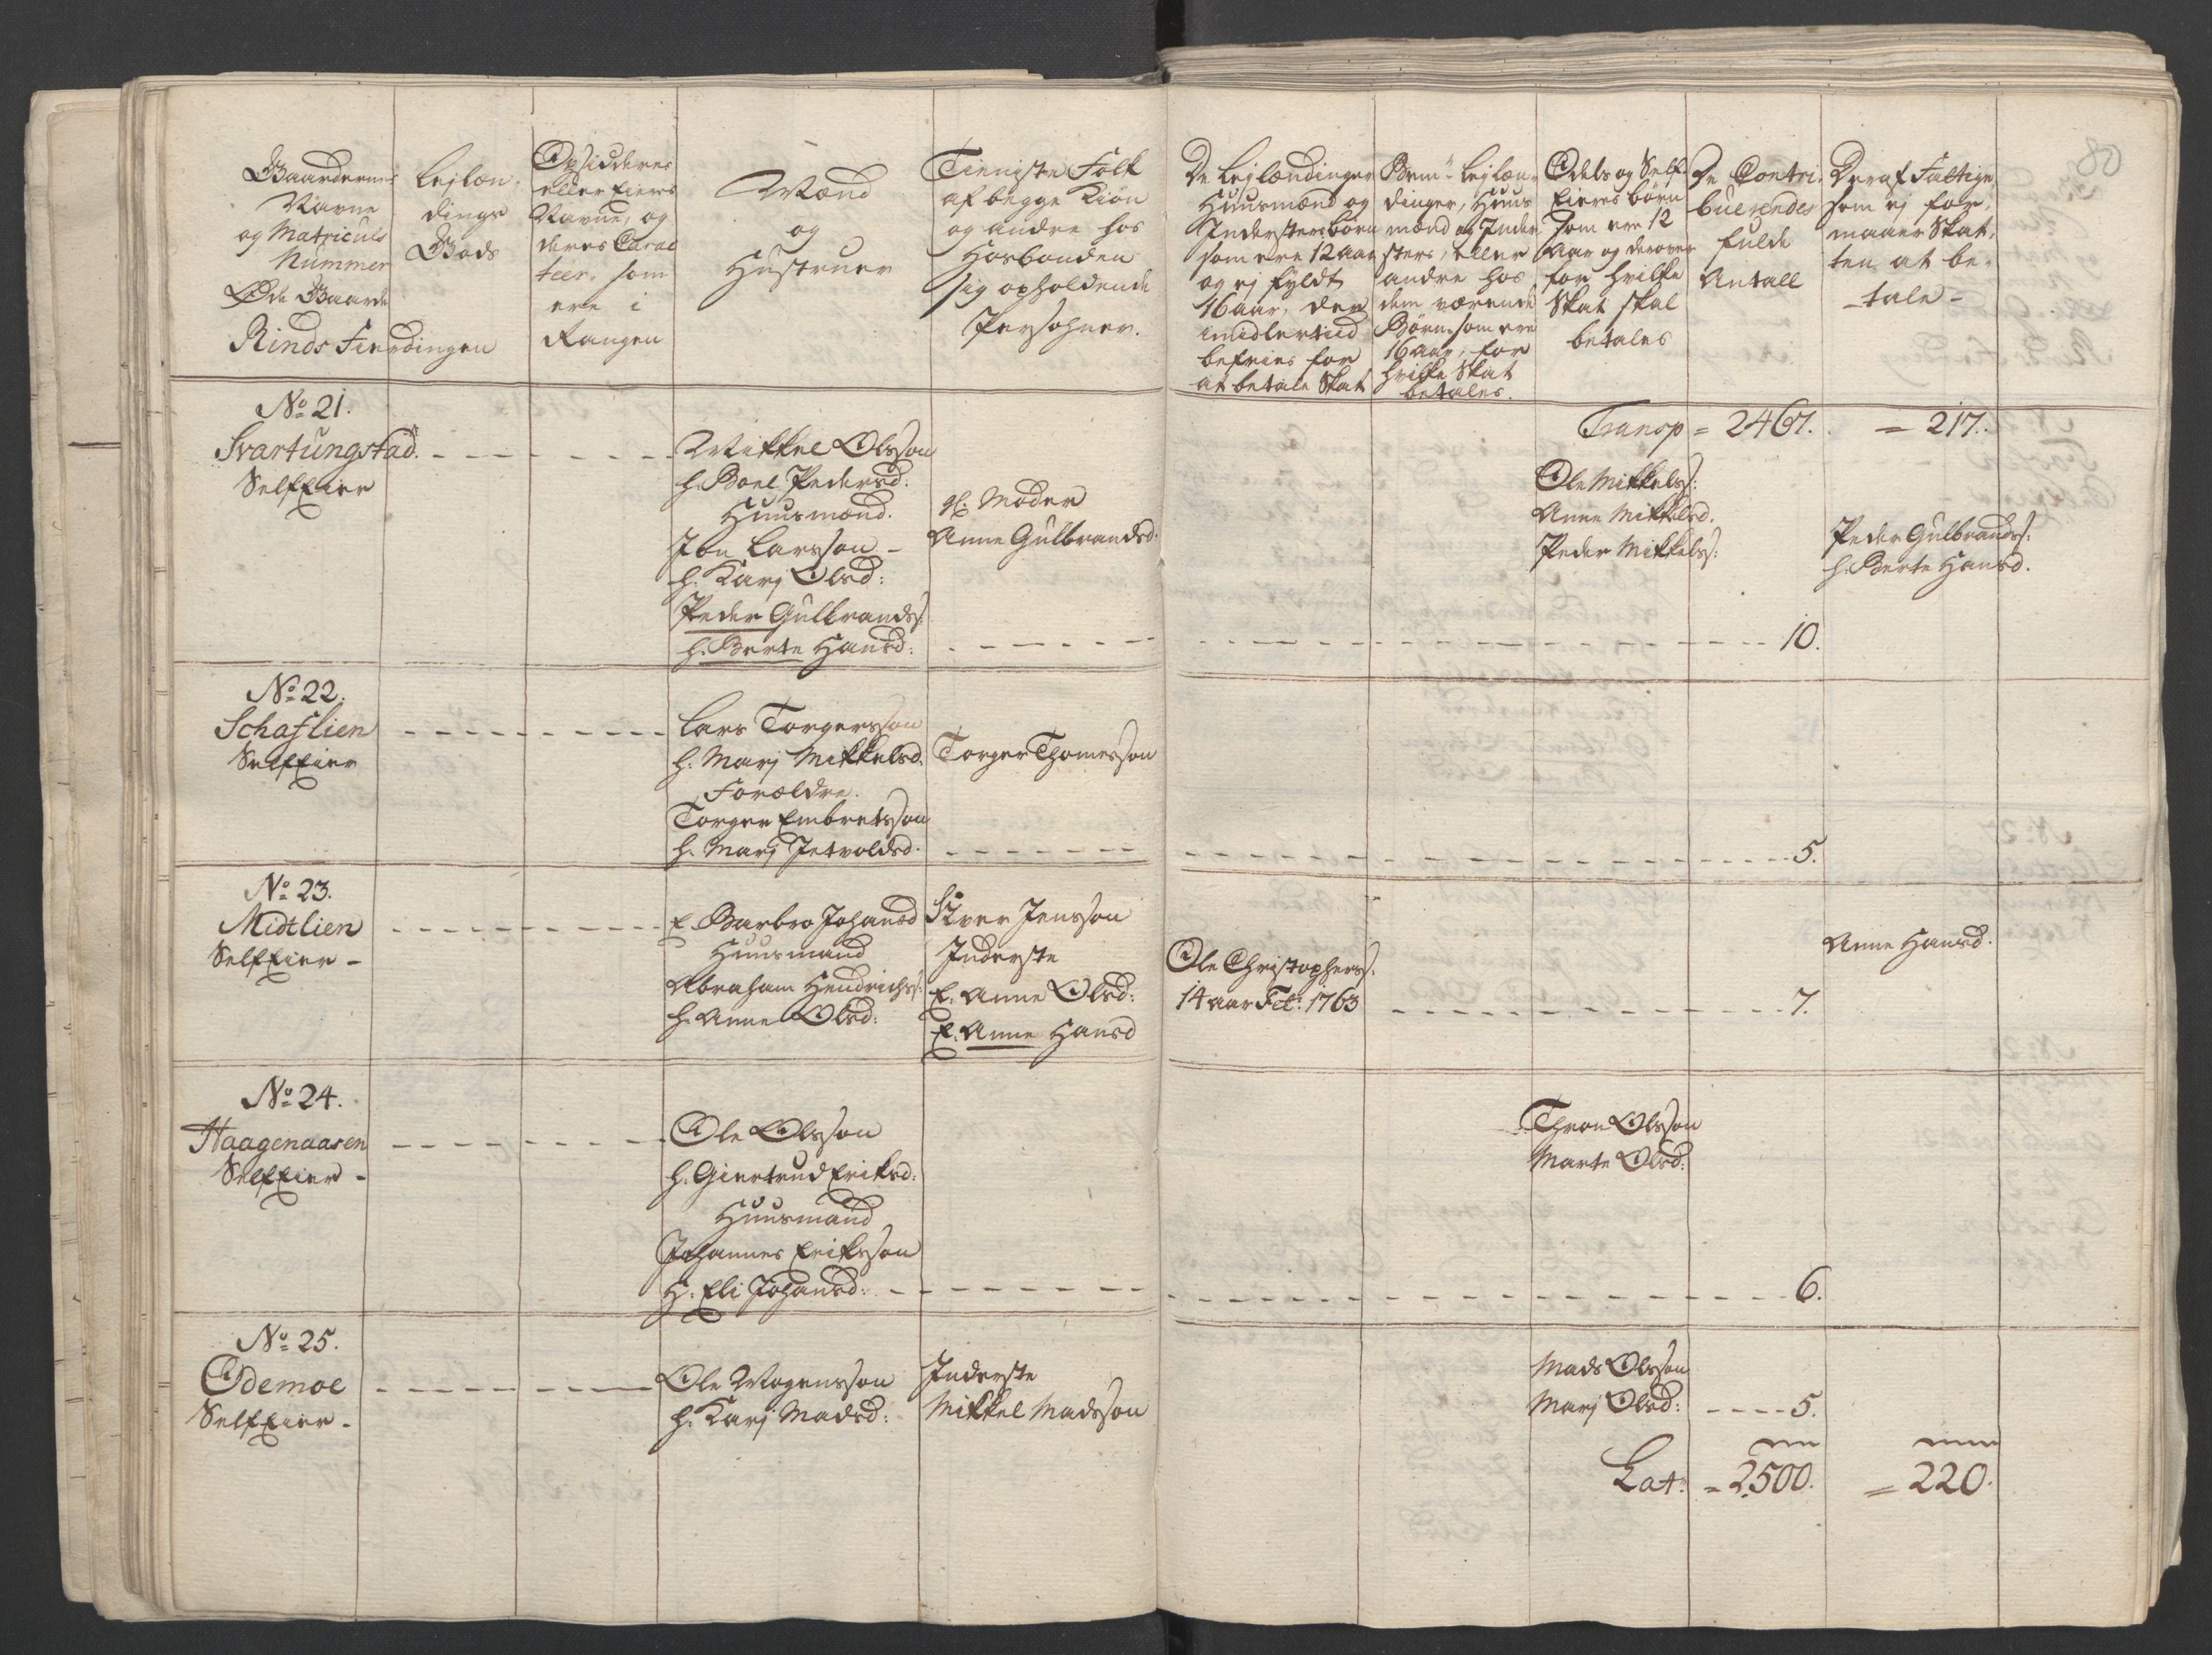 Gaardernes
Navne
og Matriculs
Nummer
Øde Gaarde
Rinds Fierdingen
Lejlæn-
dings
Gods
Opsiddernes
eller Eiers
Navne, og
deres Carac
teer, som
ere i
Rangen
Mænd
og
Hustruer
Tieniste Folk
af begge Kiøn
og andre hos
Hosbonden
sig opholdende
Persohner.
De Lejlændinger
Huusmænd og
Indersters børn
som ere 12 aar
og ej fyldt
16 aar, der
imidlertiid
befries for
at betale Skat
Bem: Lejlæn-
dinger, Huus
mænd og Inder
sters, eller
andre hos
dem værende
Børn som ere
16 aar, for
hvilke Skat
betales.
Odels og Self-
Eieres børn
som ere 12
Aar og derover
for hvilke
Skat skal
betales
De Contri-
buerendes
fulde
Antall
Deraf Fattige
som ej for-
maaer Skat-
ten at be-
tale -
Transp = 2467. = 217.
No 21.
Svartungstad
SelfEier
Mikkel Olsson
h. Boel Pedersd:
Huusmænd.
Jon Larsson -
h. Karj Olsd:
Peder Gulbrands:
h. Berte Hansd:
h. Moder
Anne Gulbrandsd.
Ole Mikkels:
Anne Mikkelsd.
Peder Mikkels:
10.
Peder Gulbrands:
h. Berte Hansd.
No 22.
Schaslien
SelfEier
Lars Torgersson
h. Marj Mikkelsd.
Forældre.
Torger Embretsson
h. Marj Jetvoldsd.
Torger Thomesson
5.
No 23.
Midtlien
SelfEier -
E. Barbro Johansd
Huusmand
Abraham Hendrichs:
h. Anne Olsd:
Iver Jensson
Inderste
E. Anne Olsd:
E. Anne Hansd
Ole Christophers:
14 aar Fet: 1763
7.
Anne Hansd.
No 24.
Haagenaasen
SelfEier -
Ole Olsson
h. Giertrud Eriksd:
Huusmand
Johannes Eriksson
H. Eli Johansd:
Thron Olsson
Marte Olsd:
6.
No 25.
Odemoe
SelfEier -
Ole Mogensson
h. Karj Madsd:
Inderste
Mikkel Madsson
Mads Olsson
Marj Olsd: 5.
Lat: = 2500. = 220.